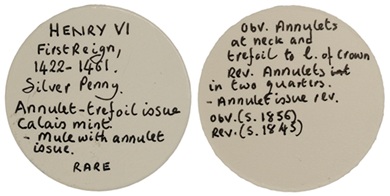 HENRY VI
First Reign,
1422-1461.
Silver Penny.
Annulet-trefoil issue
Calais mint.
- Mule with annulet
issue.
RARE
Obv. Annulets
at neck and
trefoil to l. of crown
Rev. Annulets
in two quarters.
- Annulet issue rev.
Obv. (S. 1856)
Rev. (S. 1845)